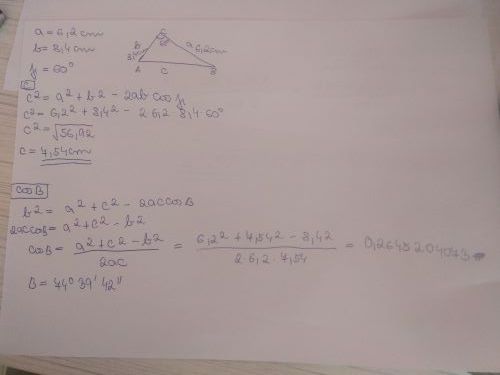 a = 6,2 cm
b = 8,4 cm
γ = 60°
C
60°
b
8,4
a 6,2cm
A
c
B
c
c² = a² + b² - 2ab cos γ
c² = 6,2² + 8,4² - 2 6,2 8,4 · 60°
c² = √56,92
c = 4,54cm
cosB
b² = a² + c² - 2accosB
2accosB = a² + c² - b²
cosB = (a² + c² - b²) / 2ac = (6,2² + 4,54² - 8,42) / 2·6,2·4,54 = 0,2645204073
B = 74° 39' 42"